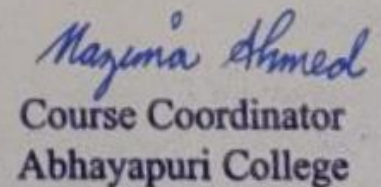 Nazima Ahmed
Course Coordinator
Abhayapuri College